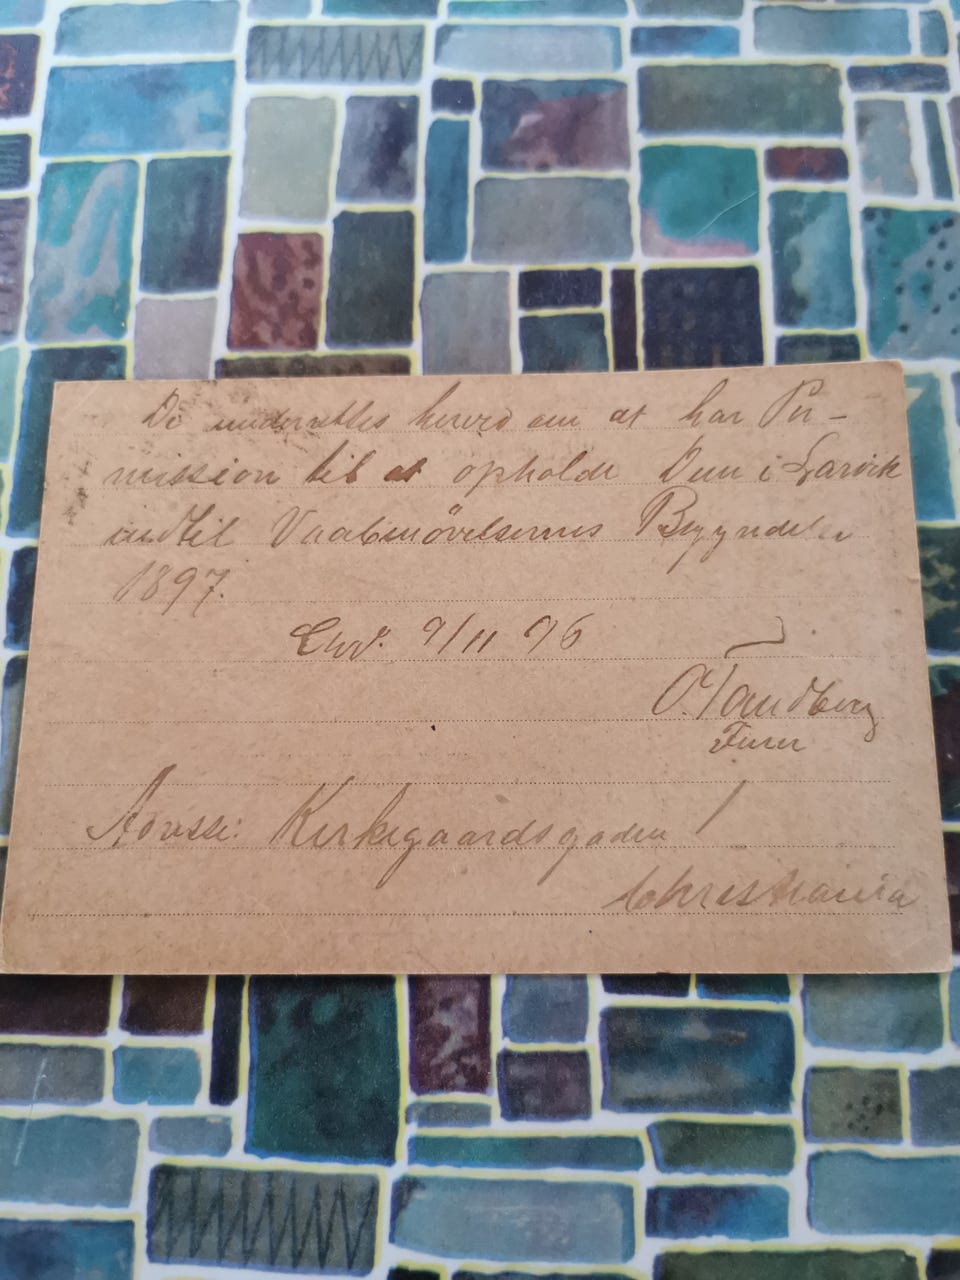 De underrettes herved om at har Per-
mission til at opholde Dem i Larvik
indtil Vaabenövelsernes Begyndelse
1897.
Chra. 9/11 96
O. Tandberg
Furer
Adresse: Kirkegaardsgaden 1
Christiania